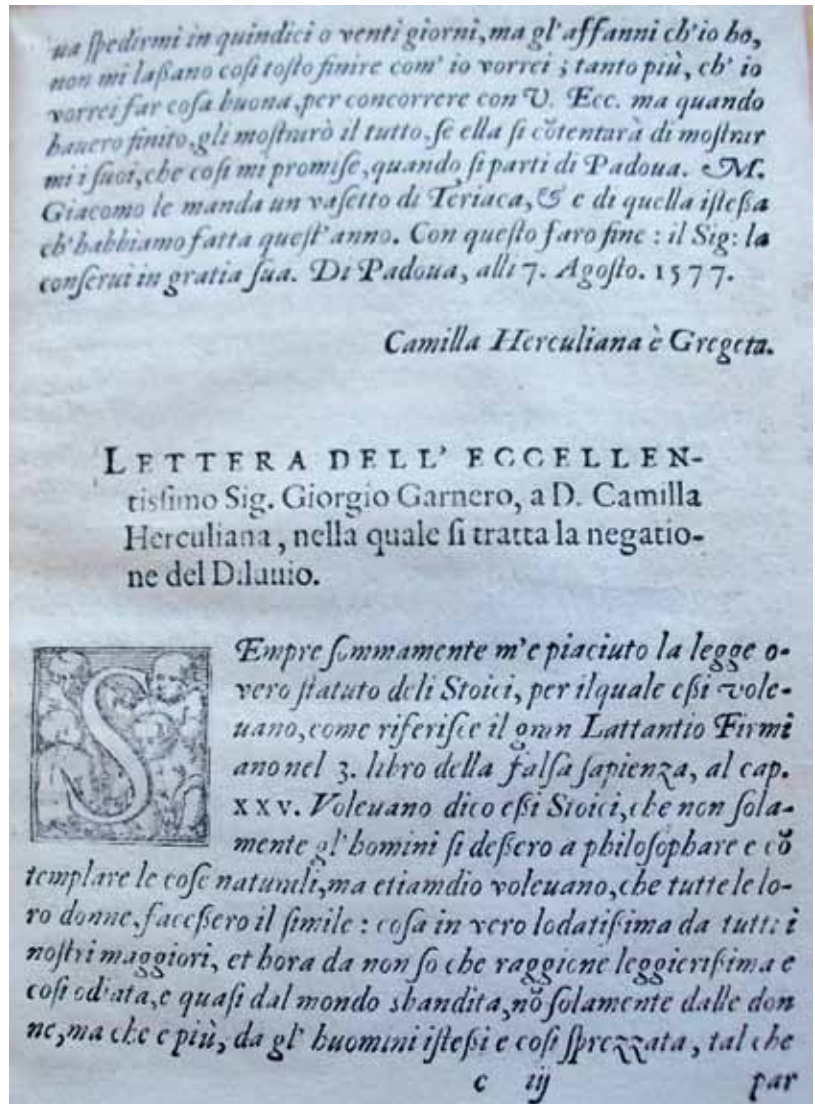 ua ſpedirmi in quindici o venti giorni, ma gl' affanni ch'io ho,
non mi laßano coſi toſto finire com' io vorrei; tanto più, ch' io
vorrei far coſa buona, per concorrere con V. Ecc. ma quando
hauero finito, gli moſtrarò il tutto, ſe ella ſi cõtentarà di moſtrar
mi i ſuoi, che coſi mi promiſe, quando ſi parti di Padoua. M.
Giacomo le manda un vaſetto di Teriaca, & e di quella iſteßa
ch'habbiamo fatta queſt' anno. Con queſto faro fine: il Sig: la
conſerui in gratia ſua. Di Padoua, alli 7. Agoſto. 1577.
Camilla Herculiana è Gregeta.
LETTERA DELL' ECCELLEN-
tiſſimo Sig. Giorgio Garnero, a D. Camilla
Herculiana, nella quale ſi tratta la negatio-
ne del Diluuio.
SEmpre ſommamente m'e piaciuto la legge o-
vero ſtatuto deli Stoici, per ilquale eßi vole-
uano, come riferiſce il gran Lattantio Firmi
ano nel 3. libro della falſa ſapienza, al cap.
XXV. Voleuano dico eßi Stoici, che non ſola-
mente gl' homini ſi deßero a philoſophare e cõ
templare le coſe naturali, ma etiamdio voleuano, che tutte le lo-
ro donne, faceßero il ſimile: coſa in vero lodatißima da tutti i
noſtri maggiori, et hora da non ſo che raggione leggierißima e
coſi odiata, e quaſi dal mondo sbandita, nõ ſolamente dalle don
ne, ma che e più, da gl' huomini iſteßi e coſi ſprezzata, tal che
c iij par